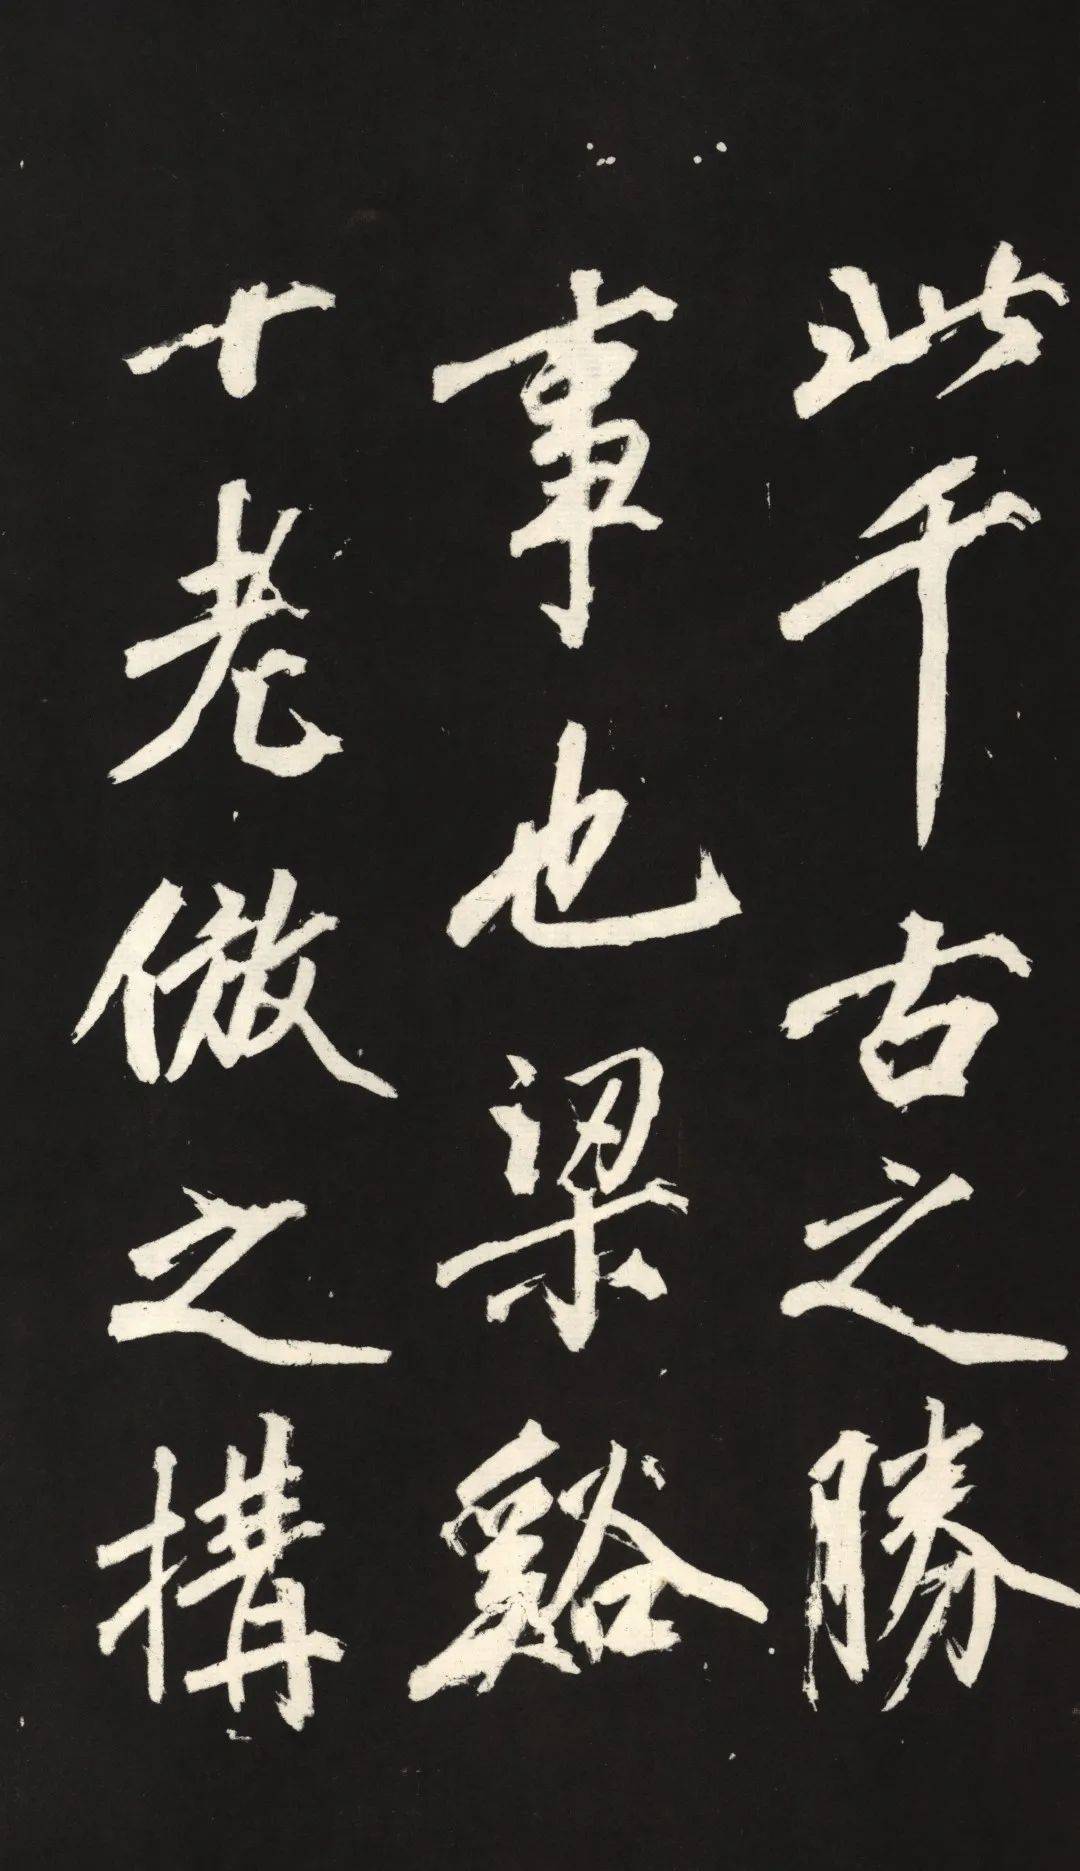 此千古之勝
事也梁谿
十老倣之搆